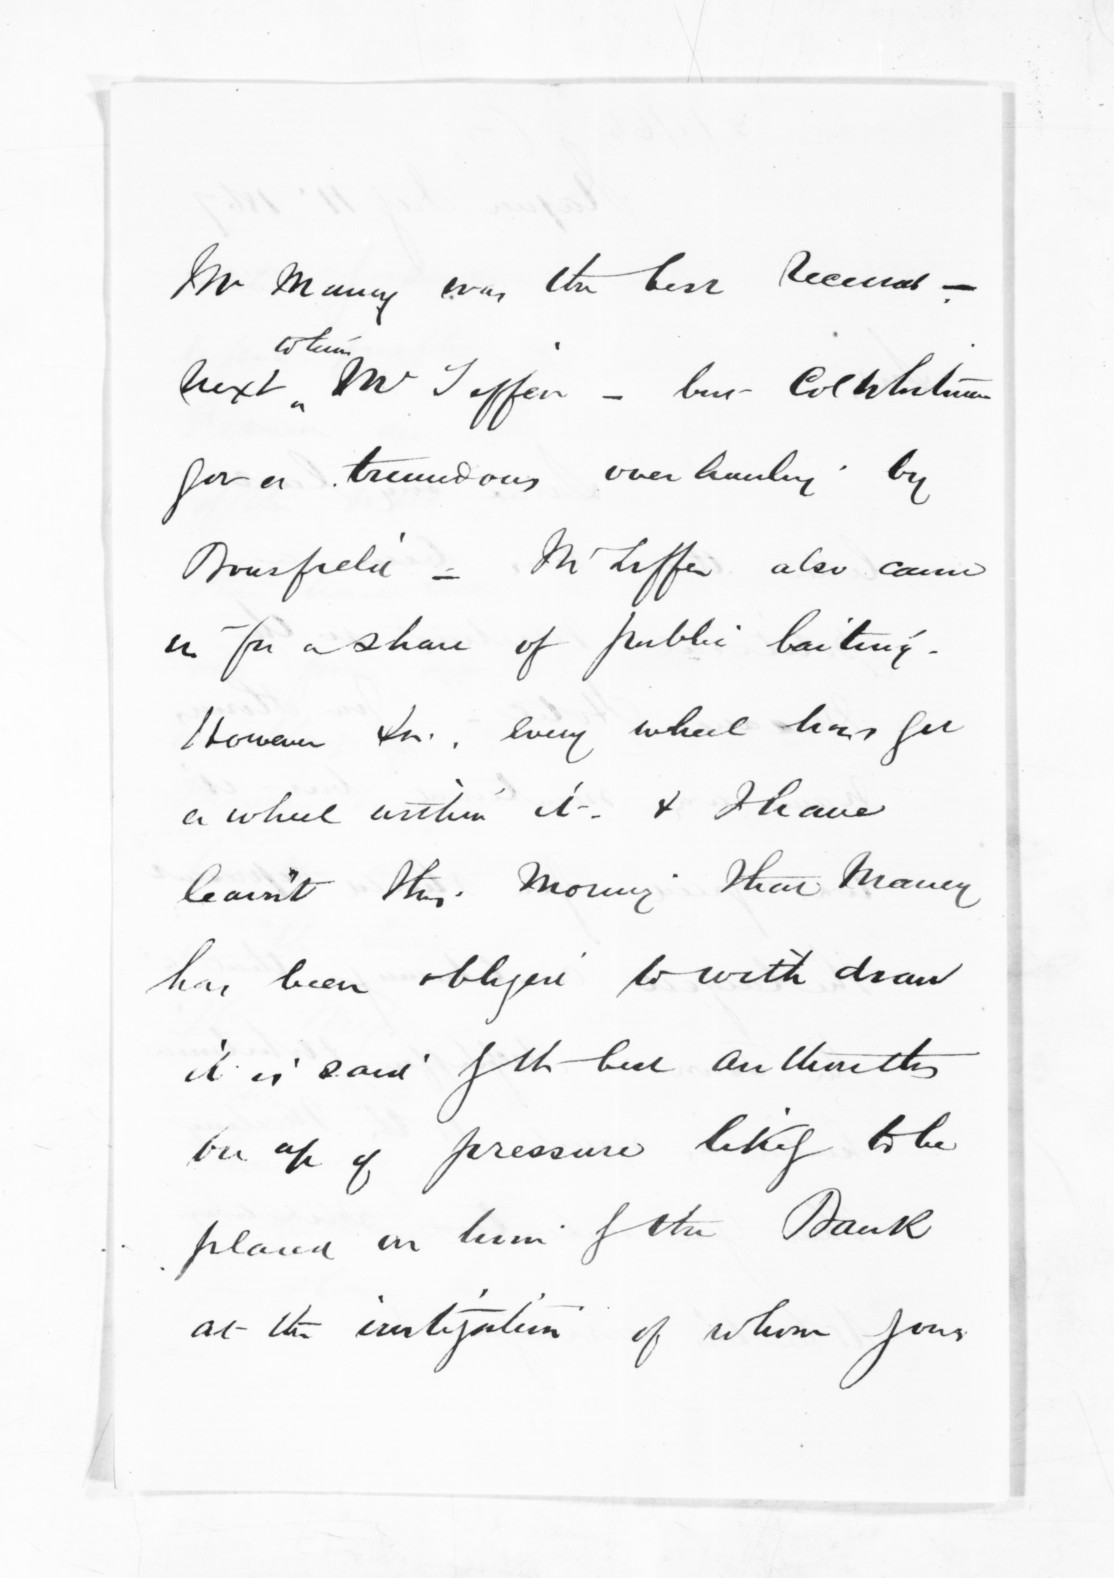 Mr Maney was the best received -
next to him Mr Tiffen - but Col Whitmore
got a tremendous overhauling by
Bousfield - Mr Tiffen also came
in for a share of public baiting.
However Sir, every wheel has got
a wheel within it - & I have
learnt this morning that Maney
has been obliged to withdraw
it is said f the best authorities
on a/c of pressure likely to be
placed on him f the Bank
at the instigation of whom your